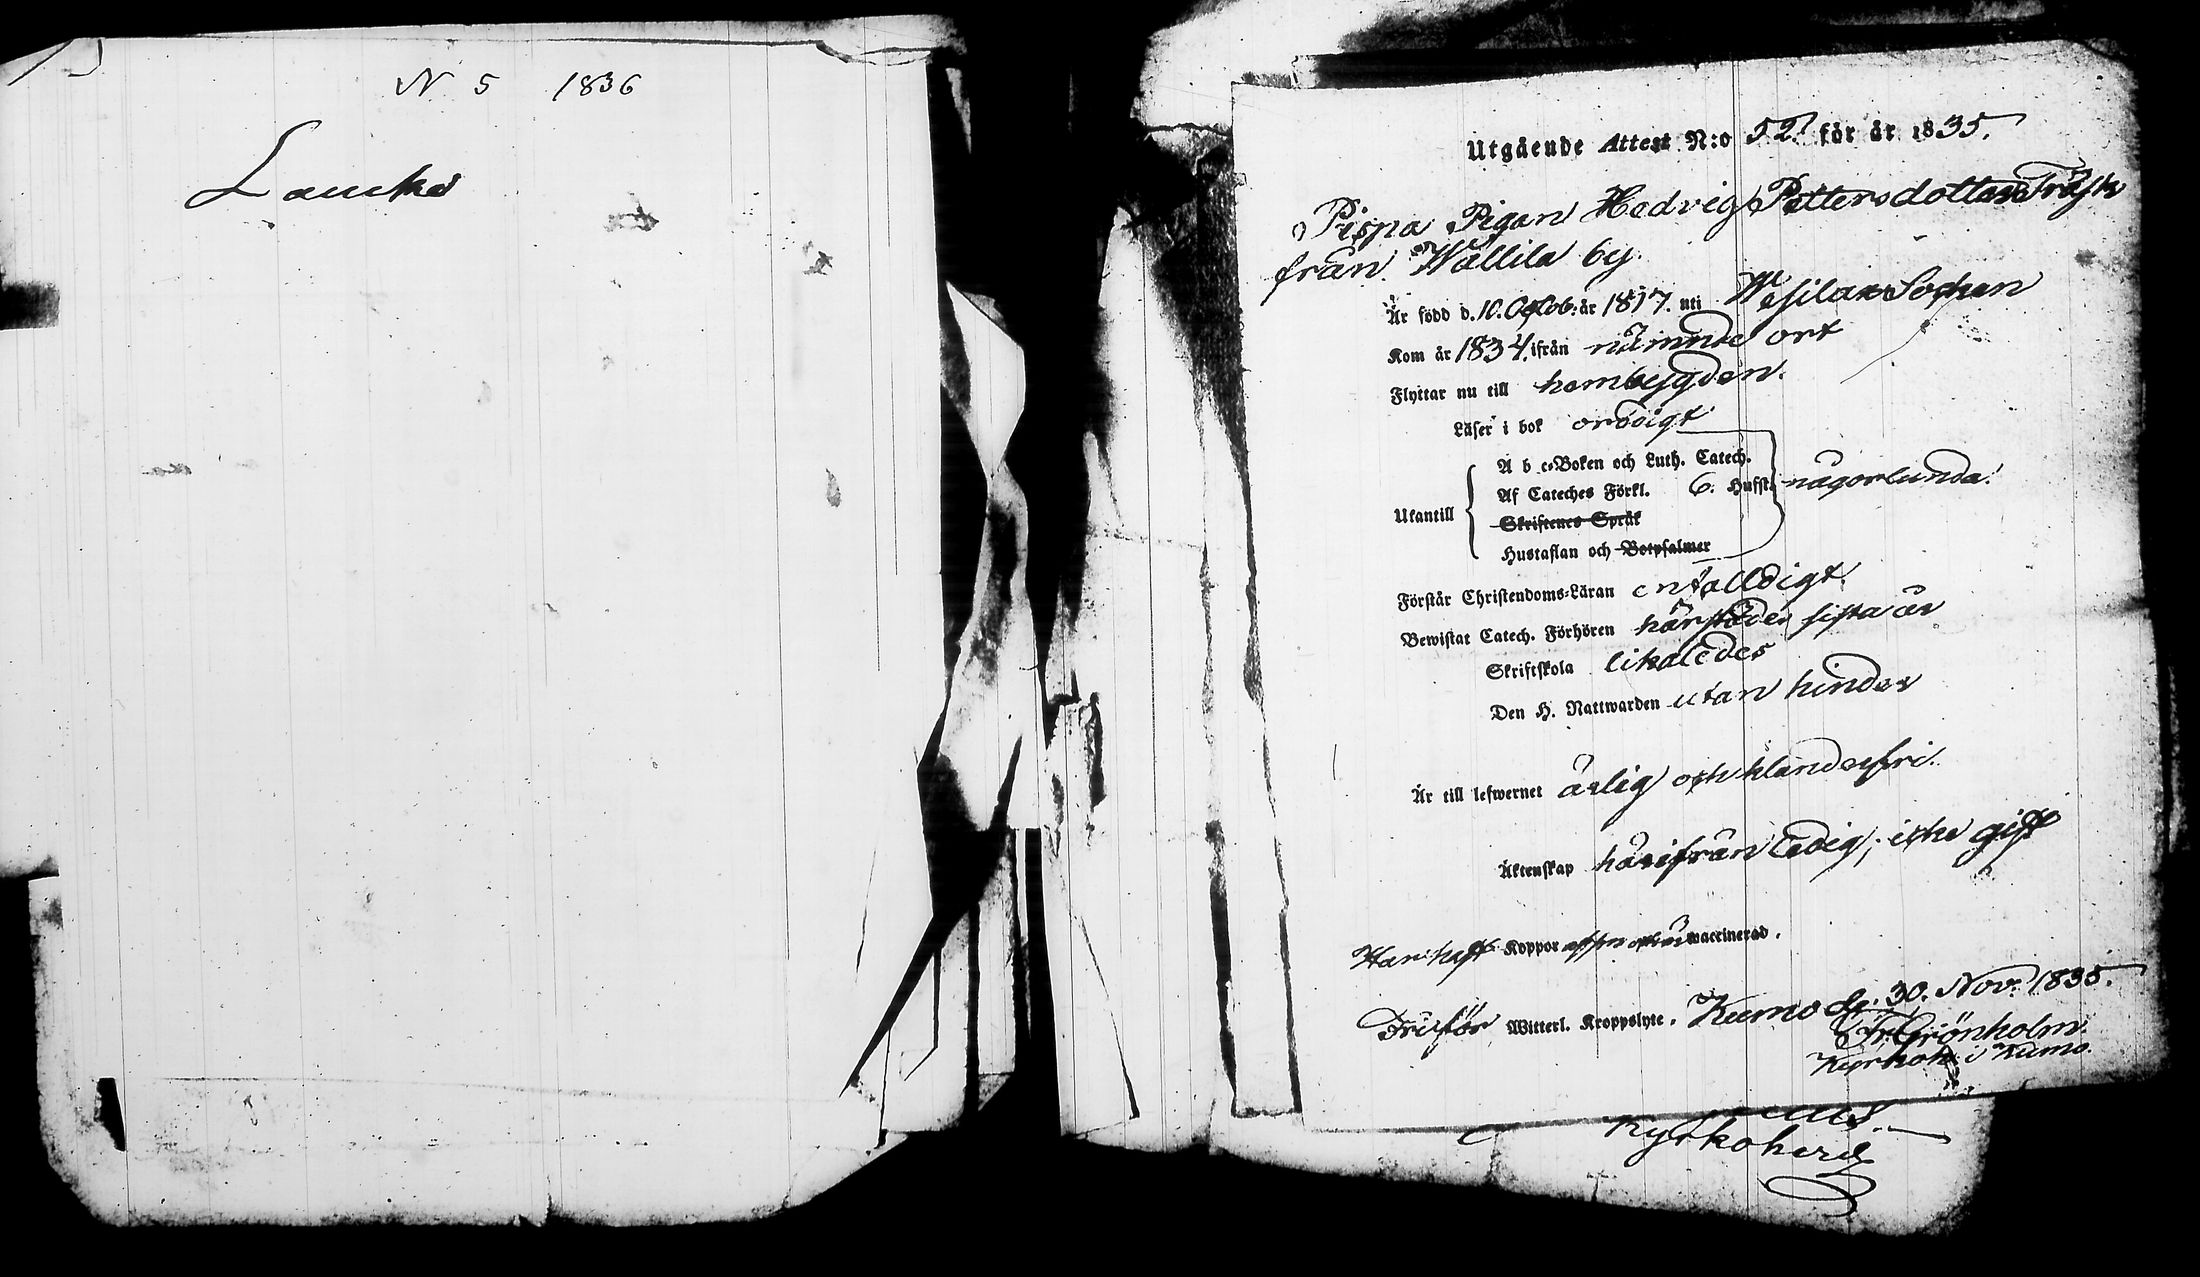 N 5 1836
Laucko
Utgående Attest N:o 52. för år 1835.
Pispa Pigan Hedvig Pettersdotter Träsk
från Wällilä by.
Är född d. 10. Octob: år 1817. uti Wesilax Sochen
Kom år 1834. ifrån nämnde ort
Flyttar nu till hembygden.
Läser i bok ordeigt
A b c-Boken och Luth. Catech.
Af Cateches Förkl. 6. Hufst. någorlunda.
Utantill
Skriftenes Språk
Hustaflan och Botpsalmer
Förstår Christendoms-Läran enfalldigt.
Bewistat Catech. Förhören härstädes sista år
Skriftskola likaledes
Den H. Nattwarden utan hinder
Är till lefwernet ärlig och klanderfri.
Äktenskap härifrån ledig; icke gift
Har haft Koppor waccinerad.
Fri för Witterl. Kroppslyte. Kumo d. 30. Nov. 1835.
Fr. Grönholm.
Kyrkoh: i Kumo.
Kyrkoherde